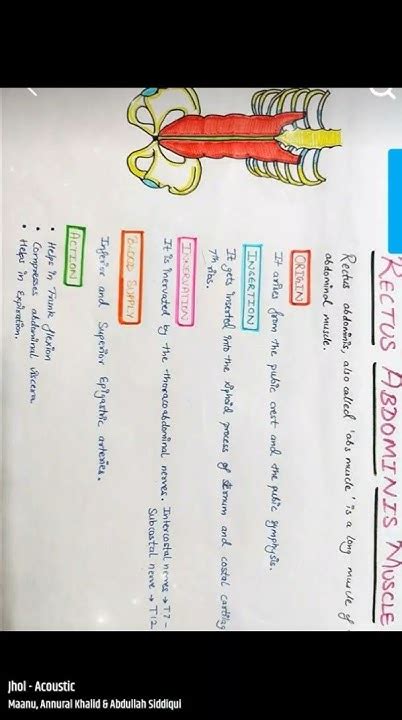 RECTUS ABDOMINIS MUSCLE
Rectus abdominis, also called 'abs muscle' is a long muscle of
abdominal muscle.
ORIGIN
It arises from the pubic crest and the pubic symphysis.
INSERTION
It gets inserted into the xiphoid process of sternum and costal cartilag
7th ribs.
INNERVATION
It is inervated by the thoracoabdominal nerves. Intercostal nerves → T7 -
Subcostal nerve → T12
BLOOD SUPPLY
Inferior and Superior Epigastric arteries.
ACTION
• Helps in Trunk flexion
• Compresses abdominal viscera
• Helps in Expiration.
Jhol - Acoustic
Maanu, Annural Khalid & Abdullah Siddiqui